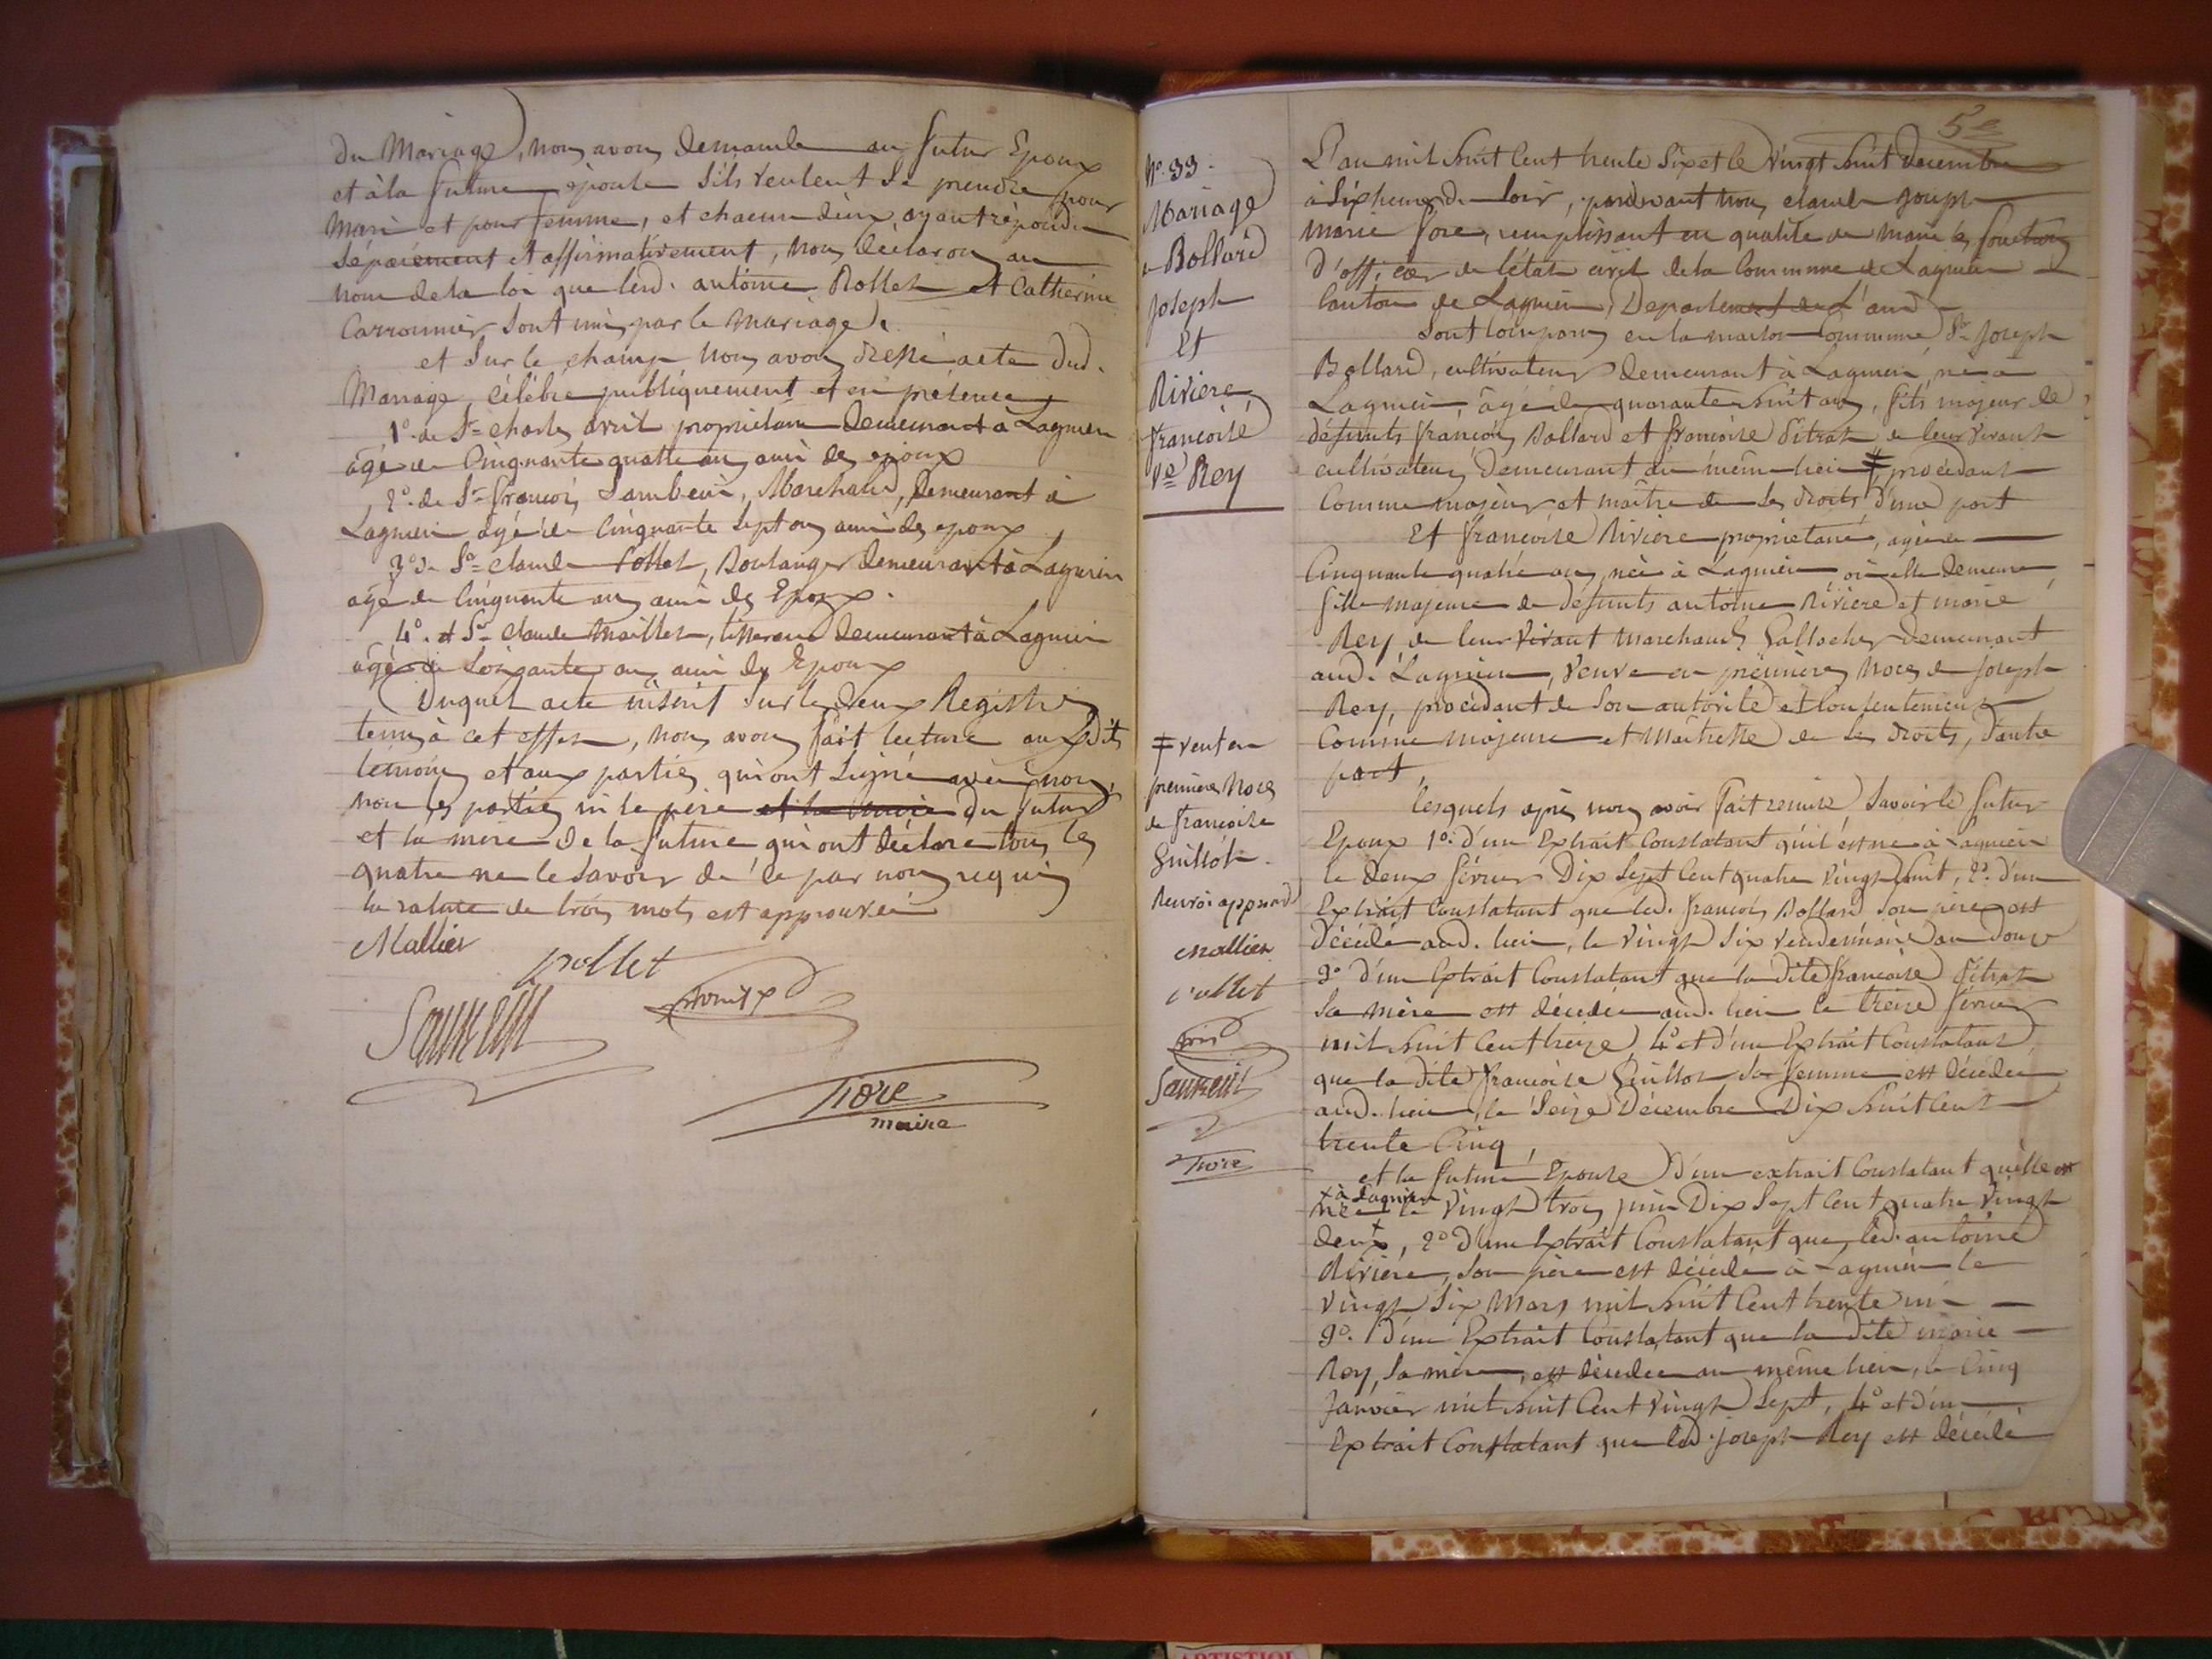 du Mariage, nous avons demandé au futur Epoux
et à la future épouse s'ils veulent se prendre pour
mari et pour femme, et chacun d'eux ayant répondu
séparément et affirmativement, nous déclarons au
nom de la loi que led. antoine Rollet et Catherine
Carronnier sont unis par le mariage.
et sur le champ nous avons dressé acte dud.
Mariage, célébré publiquement et en présence
1º. de Sr. charles avril propriétaire demeurant à Lagnieu
âgé de Cinquante quatre ans ami des epoux
2º. de Sr. françois Marchand, demeurant à
Lagnieu agé de Cinquante sept ans ami des epoux
3º. de Sr. claude Pollet, Boulanger demeurant à Lagnieu
agé de Cinquante ans ami des Epoux.
4º. et Sr. claude Mallier, tisserand demeurant à Lagnieu
âgé de soixante ans ami des Epoux
Duquel acte inscrit sur les deux Registres
tenus à cet effet, nous avons fait lecture auxdits
témoins et aux parties qui ont signé avec nous,
non les parties ni le père et la mère du futur
et la mere de la future qui ont déclaré tous les
quatre ne le savoir de ce par nous requis
la rature de trois mots est approuvée
Mallier
pollet
Fiore
maire
5e
Nº. 33.
Mariage
Bollard
Joseph
Et
Riviere
françoise
Ve Rey
L'an mil huit Cent trente six et le vingt huit decembre
à six heures du soir, pardevant nous claude joseph
marie fiore, remplissant en qualité de maire les fonctions
d'officier de l'état civil de la Commune de Lagnieu
Canton de Lagnieu, Departement de L'ain
sont comparus en la maison Commune Sr. Joseph
Bollard, cultivateur demeurant à Lagnieu, né à
Lagnieu, âgé de quarante huit ans, fils majeur de
défunts françois Bollard et françoise Sitrat de leur vivant
cultivateurs demeurant au même lieu ‡ procédant
Comme majeur et maître de ses droits, d'une part
Et françoise Riviere propriétaire, agée de
Cinquante quatre ans, née à Lagnieu, où elle demeure
fille majeure de défunts antoine Riviere et marie
Rey de leur vivant marchands demeurant
aud. Lagnieu, veuve en premières noces de Joseph
Rey, procédant de son autorité et consentement
Comme majeure et Maîtresse de ses droits, d'autre
part,
lesquels après nous avoir fait remise, savoir le futur
Epoux 1º. d'un Extrait Constatant qu'il est né à Lagnieu
le deux février Dix sept Cent quatre vingt huit, 2º. d'un
Extrait Constatant que led. françois Bollard son père est
décédé aud. lieu, le vingt six vendémiaire an douze
3º d'un Extrait Constatant que la dite françoise Sitrat
sa mère est décédée aud. lieu le treize février
mil huit Cent treize, 4º et d'un Extrait Constatant
que la dite françoise Guillot sa femme est décédée
aud. lieu, le seize Décembre Dix huit Cent
trente Cinq,
et la future Epouse d'un extrait Constatant qu'elle est
x à Lagnieu
née le vingt trois juin Dix sept Cent quatre vingt
deux, 2º d'un Extrait Constatant que led. antoine
Riviere, son père est décédé à Lagnieu le
vingt six Mars mil huit Cent trente un
3º. d'un Extrait Constatant que la dite marie
Rey, sa mère, est décédée au même lieu, le Cinq
Janvier mil huit Cent vingt sept, 4º et d'un
Extrait Constatant que led. joseph Rey est décédé
‡ veuf en
premières Noces
de françoise
Guillot.
Renvoi approuvé
Mallier
pollet
avril
Fiore